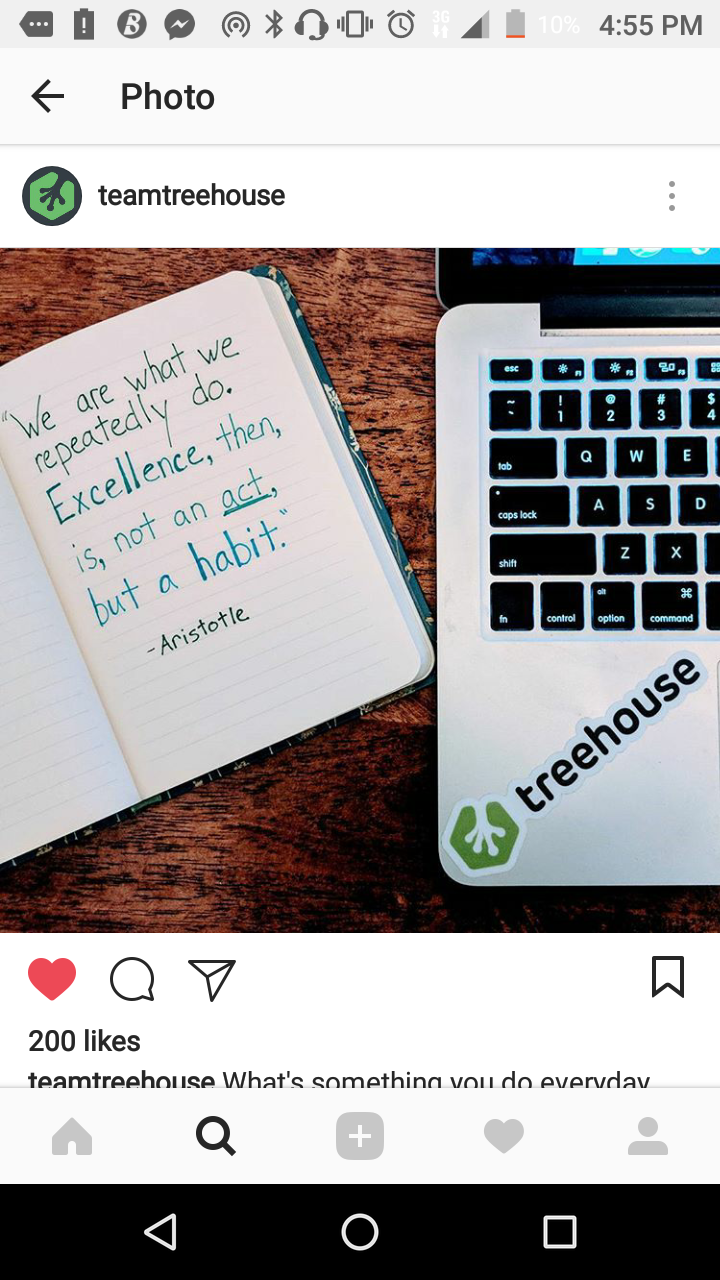 3G 10% 4:55 PM
Photo
teamtreehouse
"We are what we
repeatedly do.
Excellence, then,
is, not an act,
but a habit."
-Aristotle
esc F1 F2 F3
~ ! @ # $
` 1 2 3 4
tab Q W E
caps lock A S D
shift Z X
alt ⌘
fn control option command
treehouse
200 likes
teamtreehouse What's something you do everyday